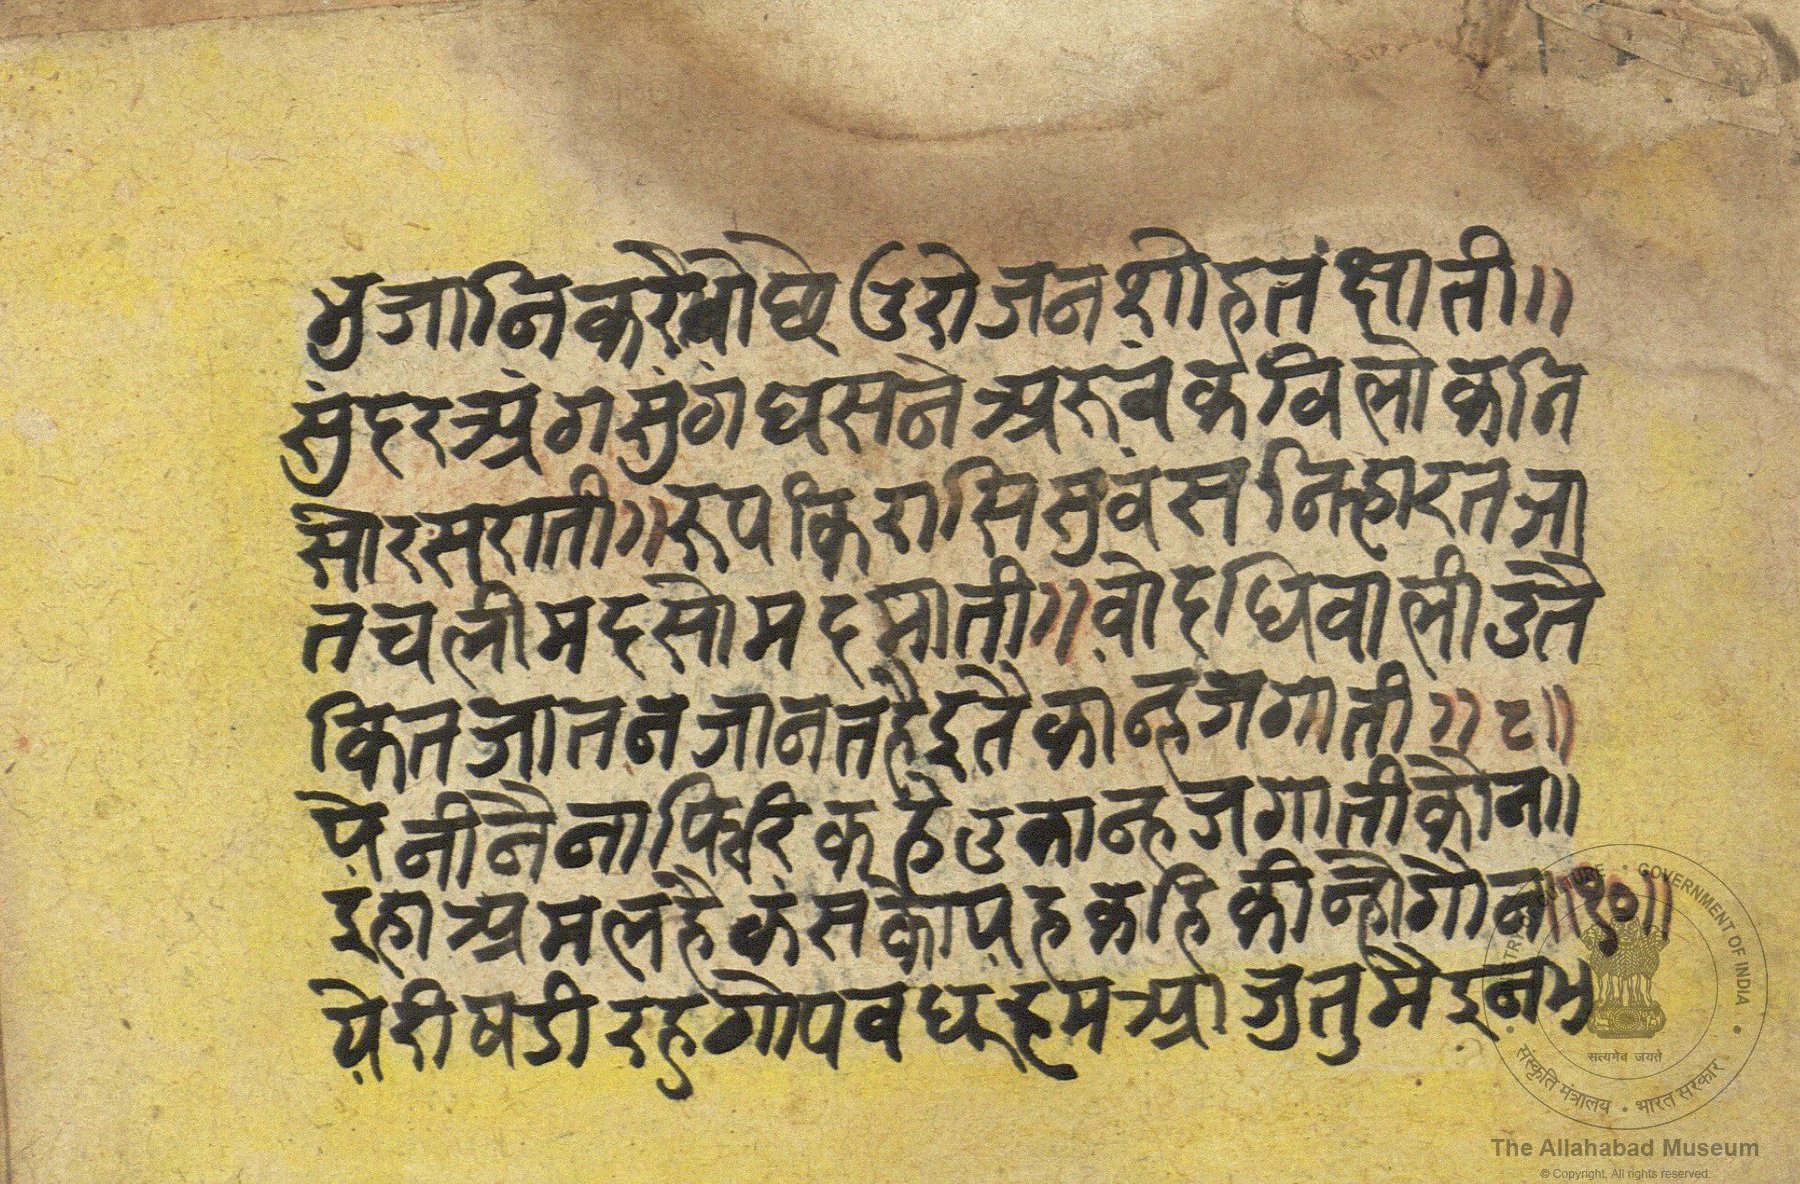 भुजानि करै बोछे उरोजन शोहतं क्षाती॥
सुंदर अंग सुंगंध सने अरु वंक विलोकनि
सार सराती॥ रूप कि रासि सुवंस निहारत जा
त चली मद सो मद माती॥ वो दधिवाली उतै
कित जात न जानत है इतै कान्ह जगाती॥ ९॥
पे नी नैना फिरि कहे उ कान्ह जगाती कौन॥
इहा अमल है कंस को पह कहि कीन्हौ गौन॥१०॥
येरी षडी रहु गोपवधू हम आजु तुमै इन भ
MINISTRY OF CULTURE • GOVERNMENT OF INDIA
सत्यमेव जयते
संस्कृति मंत्रालय • भारत सरकार
The Allahabad Museum
© Copyright, All rights reserved.